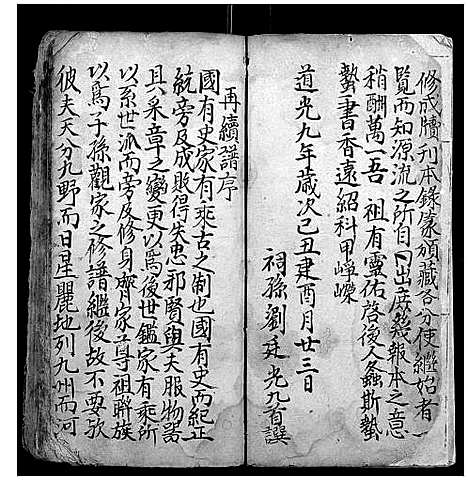 修成牘刊本錄篆頒藏各分使繼始者一
覽而知源流之所自曰出庶幾報本之意
稍酬萬一吾 祖有靈佑啓後人螽斯蟄
蟄書香遠紹科甲崢嶸
道光九年歲次己丑建酉月廿三日
祠孫劉廷光九首譔
再續譜序
國有史家有乘古之制也國有史而紀正
統旁及成敗得失忠邪賢與夫服物器
具采章之變更以為後世鑑家有乘所
以系世派而旁及修身齊家尊祖聯族
以為子孫觀家之修譜繼後故不要欤
彼夫天分九野而日星麗地列九州而河